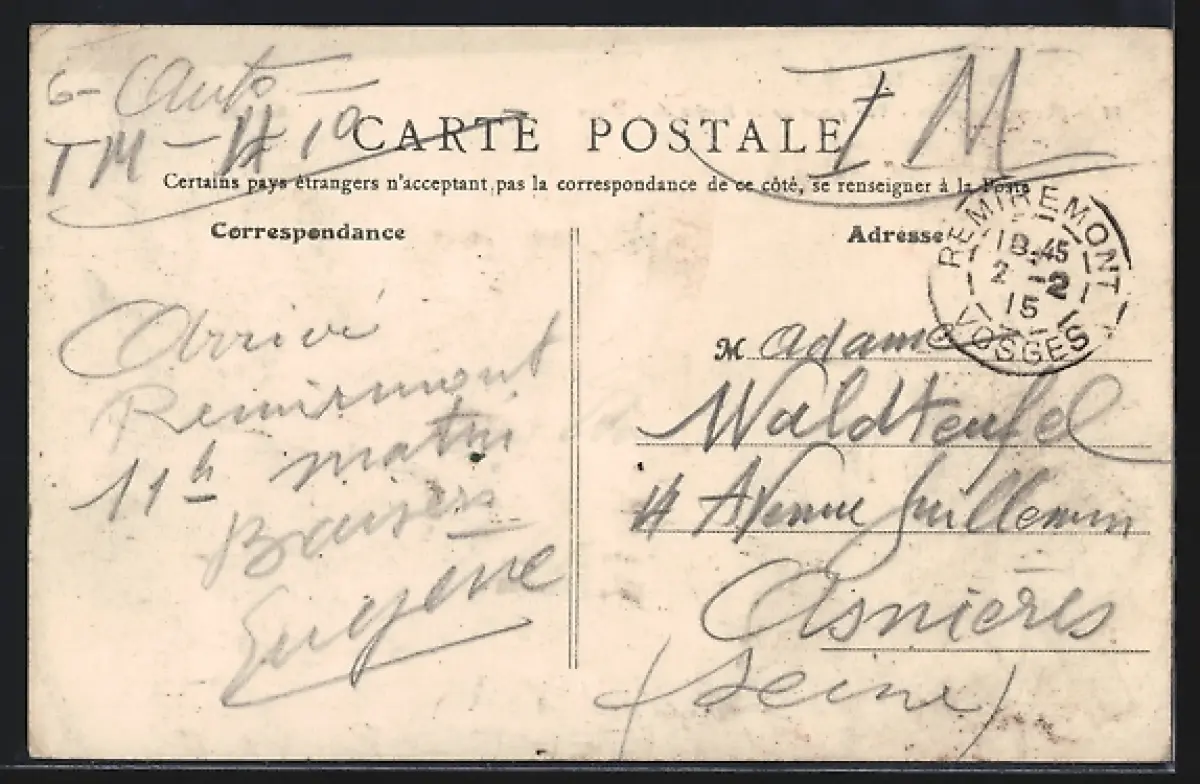 6- Auto -
TM - H 10
FM
CARTE POSTALE
Certains pays étrangers n'acceptant pas la correspondance de ce côté, se renseigner à la Poste
Correspondance
Adresse
REMIREMONT
18:45
2 -2
15
VOSGES
Arrivé
Remiremont
11h matin
Baisers
Eugène
Madame
Waldteufel
14 Avenue Guillemin
Asnières
(Seine)